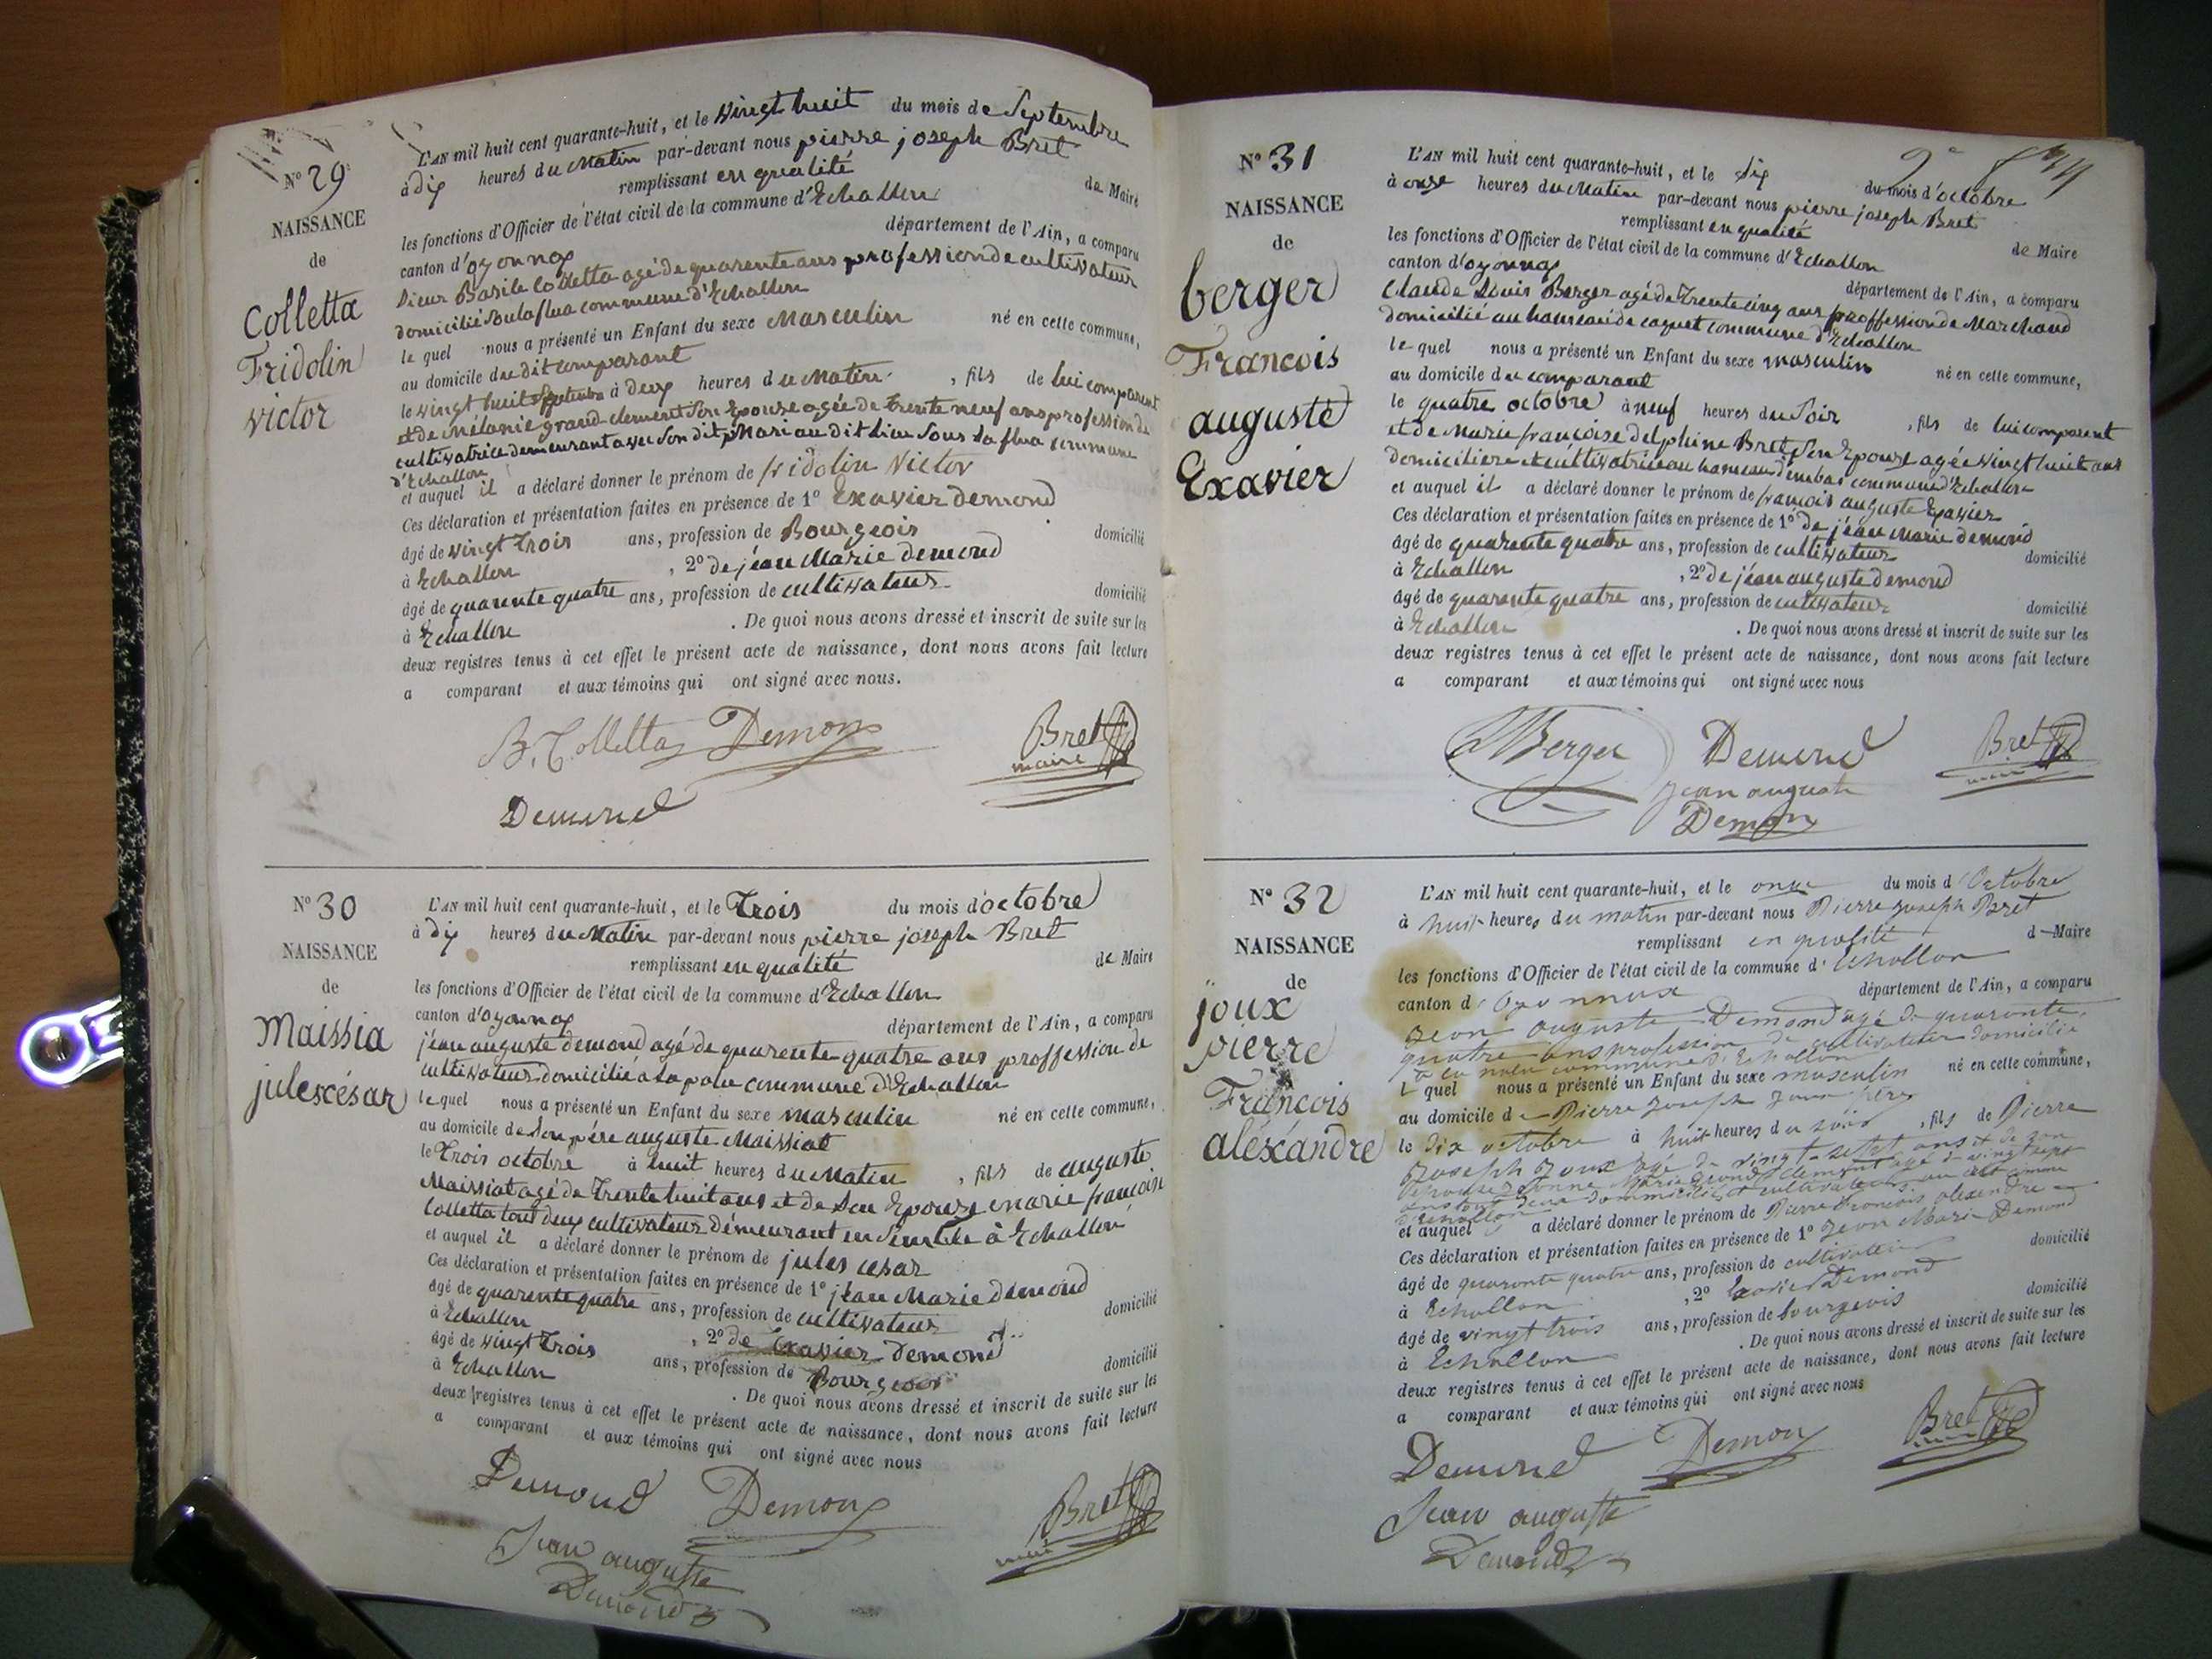 N° 29
NAISSANCE
de
Colletta
Fridolin
victor
L'AN mil huit cent quarante-huit, et le vingt huit du mois de Septembre
à dix heures du Matin par-devant nous pierre joseph Bret
remplissant en qualité de Maire
les fonctions d'Officier de l'état civil de la commune d'Echallon
canton d'oyonnax département de l'Ain, a comparu
Sieur Basile Colletta agé de quarente ans profession de cultivateur
domicilié Soulaflua commune d'Echallon
le quel nous a présenté un Enfant du sexe Masculin né en cette commune,
au domicile du dit comparant
le vingt huit Septembre à Deux heures du Matin , fils de lui comparent
et de Mélanie grand clement Son Epouse agée de trente neuf ans profession de
cultivatrice demeurant avec Son dit Mari au dit lieu Sous la flua commune
d'Echallon
et auquel il a déclaré donner le prénom de fridolin Victor
Ces déclaration et présentation faites en présence de 1° Exavier demond
âgé de vingt trois ans, profession de Bourgeois domicilié
à Echallon , 2° de jéan Marie demond
âgé de quarente quatre ans, profession de cultivateur domicilié
à Echallon . De quoi nous avons dressé et inscrit de suite sur les
deux registres tenus à cet effet le présent acte de naissance, dont nous avons fait lecture
a comparant et aux témoins qui ont signé avec nous.
B. Colletta Demon Bret
maire
Demond
N° 30
NAISSANCE
de
Maissia
jules césar
L'AN mil huit cent quarante-huit, et le Trois du mois d'octobre
à dix heures du Matin par-devant nous pierre joseph Bret
remplissant en qualité de Maire
les fonctions d'Officier de l'état civil de la commune d'Echallon
canton d'oyonnax département de l'Ain, a comparu
jéan auguste demond agé de quarente quatre ans proffession de
cultivateur domicilié a la commune d'Echallon
le quel nous a présenté un Enfant du sexe masculin né en cette commune,
au domicile de Son pére auguste Maissiat
le Trois octobre à huit heures du Matin , fils de auguste
Maissiat agé de Trente huit ans et de Son Epouse marie francoise
Colletta tout deux cultivateur Démeurant en Semble à Echallon
et auquel il a déclaré donner le prénom de jules césar
Ces déclaration et présentation faites en présence de 1° jéan Marie demond
âgé de quarente quatre ans, profession de cultivateur domicilié
à Echallon , 2° de Exavier demond
âgé de vingt trois ans, profession de Bourgeois domicilié
à Echallon . De quoi nous avons dressé et inscrit de suite sur les
deux registres tenus à cet effet le présent acte de naissance, dont nous avons fait lecture
a comparant et aux témoins qui ont signé avec nous
Demond Demon Bret
Jean auguste
Demond
N° 31
NAISSANCE
de
berger
Francois
auguste
Exavier
L'AN mil huit cent quarante-huit, et le dix du mois d'octobre
à onze heures du Matin par-devant nous pierre joseph Bret
remplissant en qualité de Maire
les fonctions d'Officier de l'état civil de la commune d'Echallon
canton d'oyonnax département de l'Ain, a comparu
Claude Louis Berger agé de Trente cinq ans proffession de Marchand
domicilié au hameau de coquet commune d'Echallon
le quel nous a présenté un Enfant du sexe masculin né en cette commune,
au domicile du comparant
le quatre octobre à neuf heures du Soir , fils de lui comparent
et de Marie francoise delphine Bret Son Epouse agée vingt huit ans
domiciliere et cultivatrice au hameau d'embas commune d'Echallon
et auquel il a déclaré donner le prénom de francois auguste Exavier
Ces déclaration et présentation faites en présence de 1° de jéan marie demond
âgé de quarente quatre ans, profession de cultivateur domicilié
à Echallon , 2° de jéan auguste demond
âgé de quarante quatre ans, profession de cultivateur domicilié
à Echallon . De quoi nous avons dressé et inscrit de suite sur les
deux registres tenus à cet effet le présent acte de naissance, dont nous avons fait lecture
a comparant et aux témoins qui ont signé avec nous
Berger Demond Bret
jean auguste
Demon
N° 32
NAISSANCE
de
joux
pierre
François
aléxandre
L'AN mil huit cent quarante-huit, et le onze du mois d'Octobre
à huit heures du matin par-devant nous Pierre Joseph Bret
remplissant en qualité d Maire
les fonctions d'Officier de l'état civil de la commune d'Echallon
canton d'Oyonnax département de l'Ain, a comparu
Jean auguste Demond agé de quarante
quatre ans profession de cultivateur domicilié
à la commune d'Echallon
l quel nous a présenté un Enfant du sexe masculin né en cette commune,
au domicile de Pierre Joseph Joux
le dix octobre à huit heures du soir , fils de Pierre
Joseph Joux agé de vingt sept ans et de son
épouse Marie grand clement agé de vingt sept
ans domicilié et cultivateurs
d'Echallon
et auquel a déclaré donner le prénom de Pierre François alexandre
Ces déclaration et présentation faites en présence de 1° Jean Marie Demond
âgé de quarante quatre ans, profession de cultivateur domicilié
à Echallon , 2° Exavier Demond
âgé de vingt trois ans, profession de bourgeois domicilié
à Echallon . De quoi nous avons dressé et inscrit de suite sur les
deux registres tenus à cet effet le présent acte de naissance, dont nous avons fait lecture
a comparant et aux témoins qui ont signé avec nous
Demond Demon Bret
Jean auguste
Demond